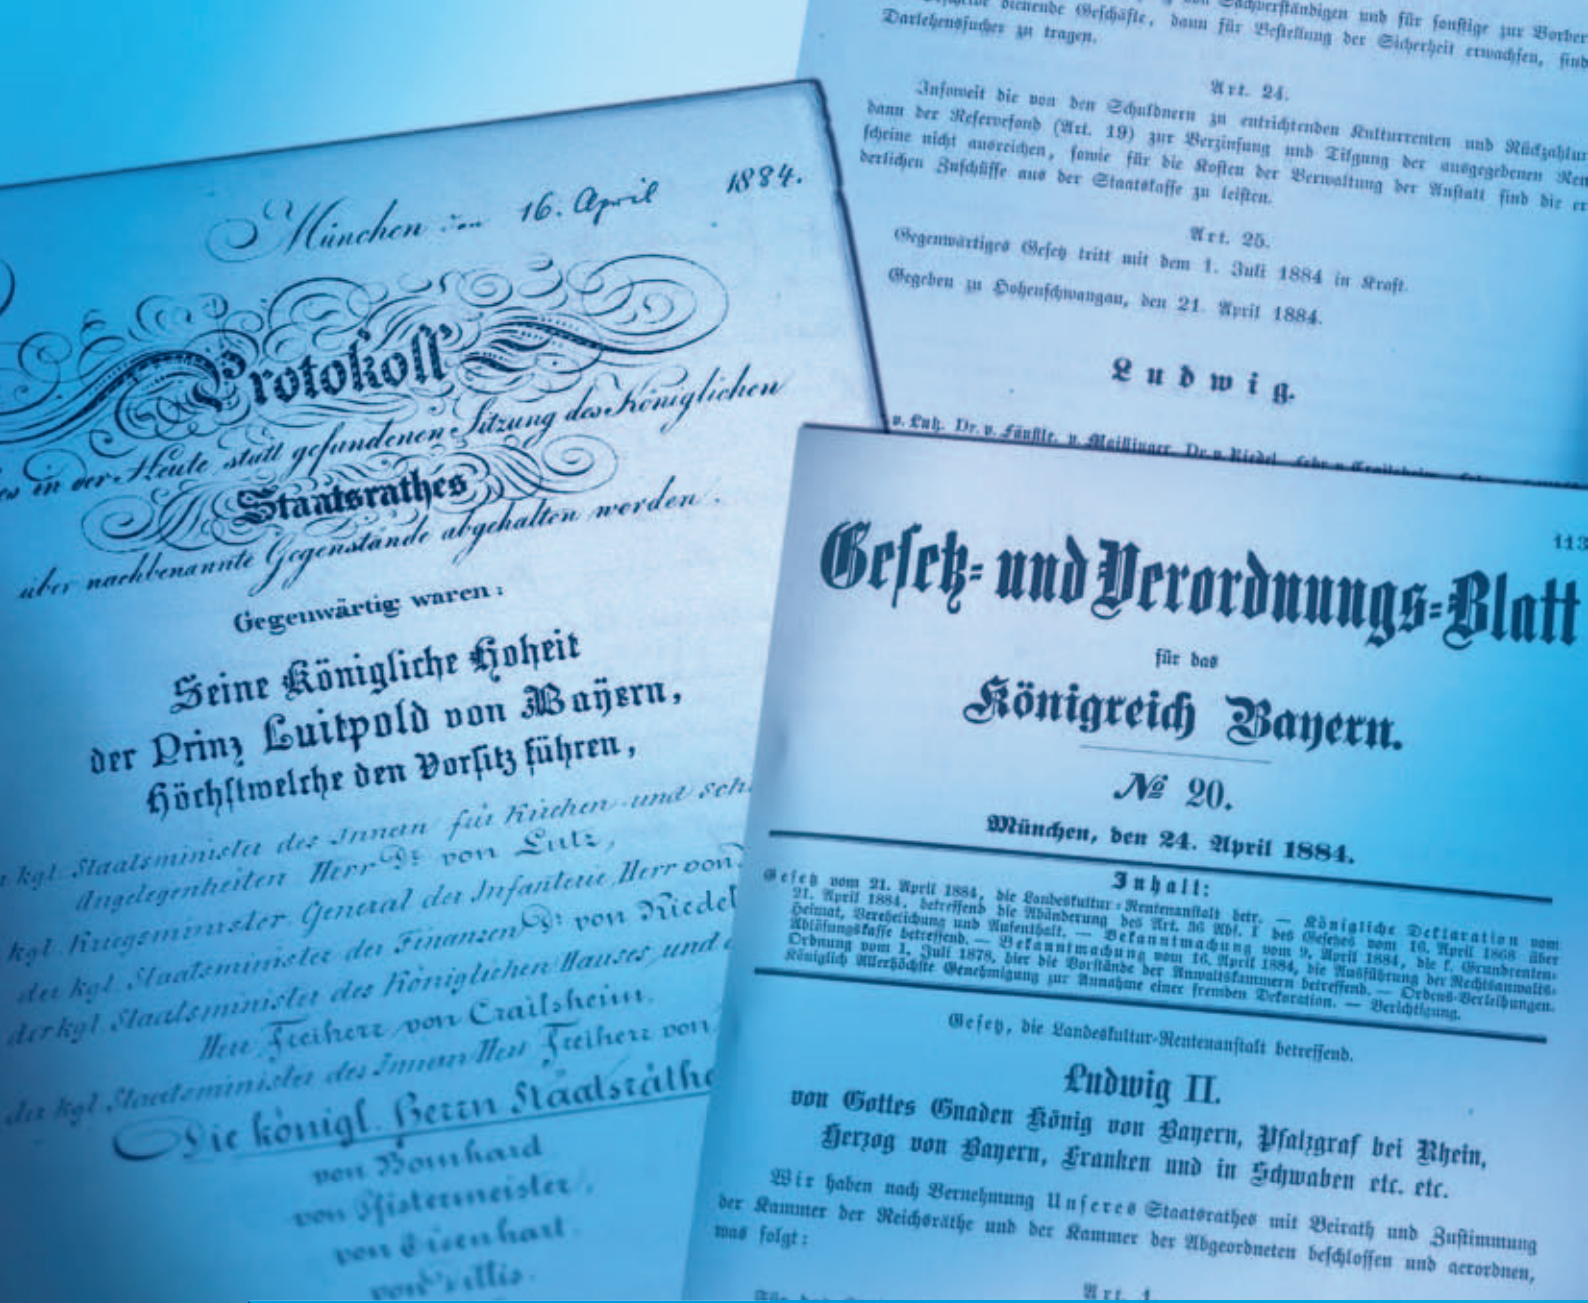 München den 16. April 1884.
Protokoll
in der Heute statt gefundenen Sitzung des Königlichen
Staatsrathes
über nachbenannte Gegenstände abgehalten worden.
Gegenwärtig waren:
Seine Königliche Hoheit
der Prinz Luitpold von Bayern,
Höchstwelche den Vorsitz führen,
kgl. Staatsminister des Innern für Kirchen und Sch
Angelegenheiten Herr Dr. von Lutz,
kgl. Kriegsminister General der Infanterie Herr von
der kgl. Staatsminister der Finanzen Dr. von Riedel
der kgl. Staatsminister des Königlichen Hauses und
Herr Freiherr von Crailsheim.
der kgl. Staatsminister des Innern Herr Freiherr von
Die königl. Herrn Staatsräthe
von Bomhard
von Pfistermeister,
von Eisenhart.
dienende Geschäfte, dann für Bestellung der Sicherheit erwachsen, sind
Sachverständigen und für sonstige zur Vorber
Darlehenssucher zu tragen.
Art. 24.
Insoweit die von den Schuldnern zu entrichtenden Kulturrenten und Rückzahlun
dann der Reservefond (Art. 19) zur Verzinsung und Tilgung der ausgegebenen Ren
scheine nicht ausreichen, sowie für die Kosten der Verwaltung der Anstalt sind die er
derlichen Zuschüsse aus der Staatskasse zu leisten.
Art. 25.
Gegenwärtiges Gesetz tritt mit dem 1. Juli 1884 in Kraft.
Gegeben zu Hohenschwangau, den 21. April 1884.
Ludwig.
v. Lutz. Dr. v. Fäustle. v. Maillinger. Dr. v. Riedel.
113
Gesetz- und Verordnungs-Blatt
für das
Königreich Bayern.
№ 20.
München, den 24. April 1884.
Inhalt:
Gesetz vom 21. April 1884, die Landeskultur-Rentenanstalt betr. — Königliche Deklaration vom
21. April 1884, betreffend die Abänderung des Art. 36 Abs. 1 des Gesetzes vom 16. April 1868 über
Heimat, Verehelichung und Aufenthalt. — Bekanntmachung vom 9. April 1884, die k. Grundrenten-
Ablösungskasse betreffend. — Bekanntmachung vom 16. April 1884, die Ausführung der Rechtsanwalts-
Ordnung vom 1. Juli 1878, hier die Vorstände der Anwaltskammern betreffend. — Ordens-Verleihungen.
Königlich Allerhöchste Genehmigung zur Annahme einer fremden Dekoration. — Berichtigung.
Gesetz, die Landeskultur-Rentenanstalt betreffend.
Ludwig II.
von Gottes Gnaden König von Bayern, Pfalzgraf bei Rhein,
Herzog von Bayern, Franken und in Schwaben etc. etc.
Wir haben nach Vernehmung Unseres Staatsrathes mit Beirath und Zustimmung
der Kammer der Reichsräthe und der Kammer der Abgeordneten beschlossen und verordnen,
was folgt:
Art. 1.